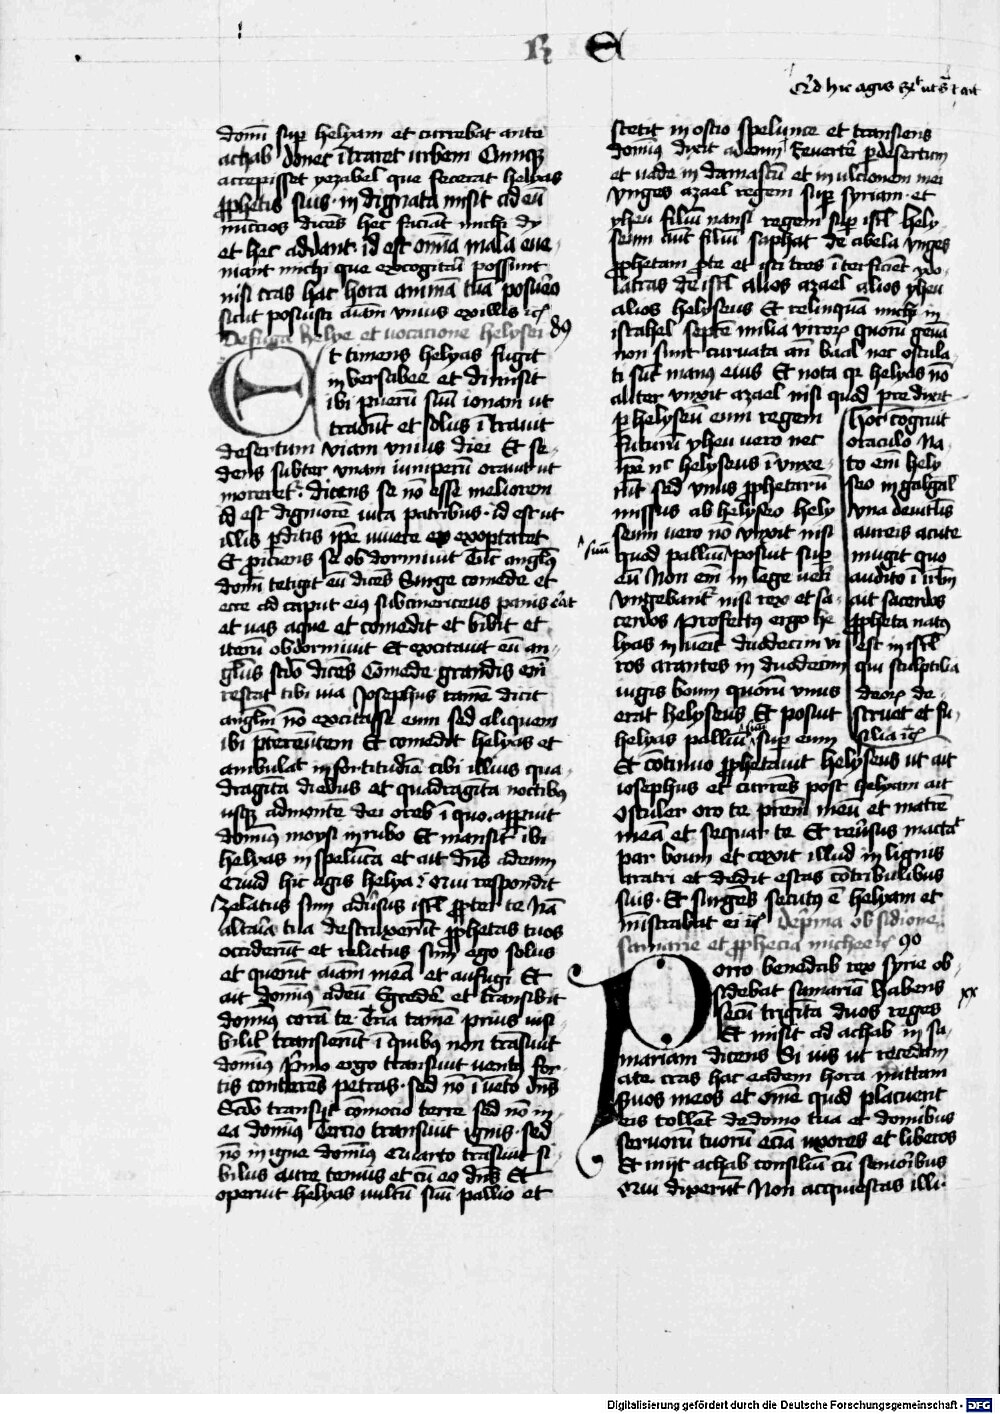 R E
Quid hic agis
domini super helyam et currebat ante
achab donec intraret urbem Cumque
accepisset yezabel que fecerat helyas
prophetis suis indignata misit ad eum
nuncios dicens hec faciant michi dy
et hec addant id est omnia mala eue-
niant michi que excogitari possunt
nisi cras hac hora animam tuam posuero
sicut posuisti animam unius ex illis
De fuga helye et uocatione helysei 89
Et timens helyas fugit
in bersabee et dimisit
ibi puerum suum ionam ut
tradunt et solus intrauit
desertum uiam unius diei Et se-
dens subter unam iuniperum orauit ut
moreretur dicens se non esse meliorem
id est digniorem uita patribus id est ut
illis perditis ipse uiuere exoptaret
Et proiciens se obdormiuit Et angelus
domini tetigit eum dicens Surge comede et
ecce ad caput eius subcinericeus panis erat
et uas aque et comedit et bibit et
iterum obdormiuit Et excitauit eum an-
gelus secundo dicens Comede grandis enim
restat tibi uia Josephus tamen dicit
angelum non excitasse eum sed aliquem
ibi pretereuntem Et comedit helyas et
ambulat in fortitudine cibi illius qua-
draginta diebus et quadraginta noctibus
usque ad montem dei oreb in quo apparuit
dominus moysi in rubo Et mansit ibi
helyas in spelunca et ait dominus ad eum
Quid hic agis helya Qui respondit
Zelatus sum aduersus israel propter te nam
altaria tua destruxerunt prophetas tuos
occiderunt et relictus sum ego solus
et querunt animam meam et aufugi Et
ait dominus ad eum Egredere et transibit
dominus coram te Tria tamen prius uisi-
biliter transierunt in quibus non transiuit
dominus Primo ergo transiuit uentus for-
tis conterens petras sed non in uento dominus
Secundo transiit commocio terre sed non in
ea dominus Tercio transiuit ignis sed
non in igne dominus Quarto transiuit si-
bilus aure tenuis et cum eo dominus Et
operuit helyas uultum suum pallio et
stetit in ostio spelunce et transiens
dominus dixit ad eum Reuertere per desertum
et uade in damascum et in ulcionem mei
unges azael regem super syriam et
yheu filium nansi regem super israel hely-
seum autem filium saphat de abela unges
prophetam pro te et isti tres interficient ydo-
latras de israel alios azael alios yheu
alios helyseus Et relinquam michi in
israhel septem milia uirorum quorum genua
non sunt curuata ante baal nec oscula-
ti sunt manus eius Et nota quod helyas non
aliter unxit azael nisi quod predixit
per helyseum eum regem
futurum yheu uero nec
ipse nec helyseus inunxe-
runt sed unus prophetarum
missus ab helyseo hely
seum uero non unxit nisi
quod pallium suum posuit super
eum Non enim in lege ueteri
ungebantur nisi rex et sa-
cerdos Profectus ergo he
lyas inuenit duodecim ui
ros arantes in duodecim
iugis boum quorum unus
erat helyseus Et posuit
helyas pallium suum super eum
hoc congruit
oraculo na-
to enim hely
seo in galgal
una de uitulis
aureis acute
mugit quo
audito in ierusalem
ait sacerdos
propheta natus
est in israel
qui sculptilia
deorum de-
struet et fu-
silia
Et continuo prophetauit helyseus ut ait
iosephus et currens post helyam ait
Osculer oro te patrem meum et matrem
meam et sequar te Et reuersus mactat
par boum et coxit illud in lignis
aratri et dedit escas contribulibus
suis Et surgens secutus est helyam et
ministrabat ei De prima obsidione
samarie et prophecia michee 90
Porro benedab rex syrie ob-
sidebat samariam habens
secum triginta duos reges
Et misit ad achab in sa-
mariam dicens Si uis ut recedam
a te cras hac eadem hora mittam
seruos meos et omne quod placuerit
eis tollent de domo tua et domibus
seruorum tuorum eciam uxores et liberos
Et iniit achab consilium cum senioribus
Qui dixerunt Non acquiescas illi
xx
Digitalisierung gefördert durch die Deutsche Forschungsgemeinschaft - DFG